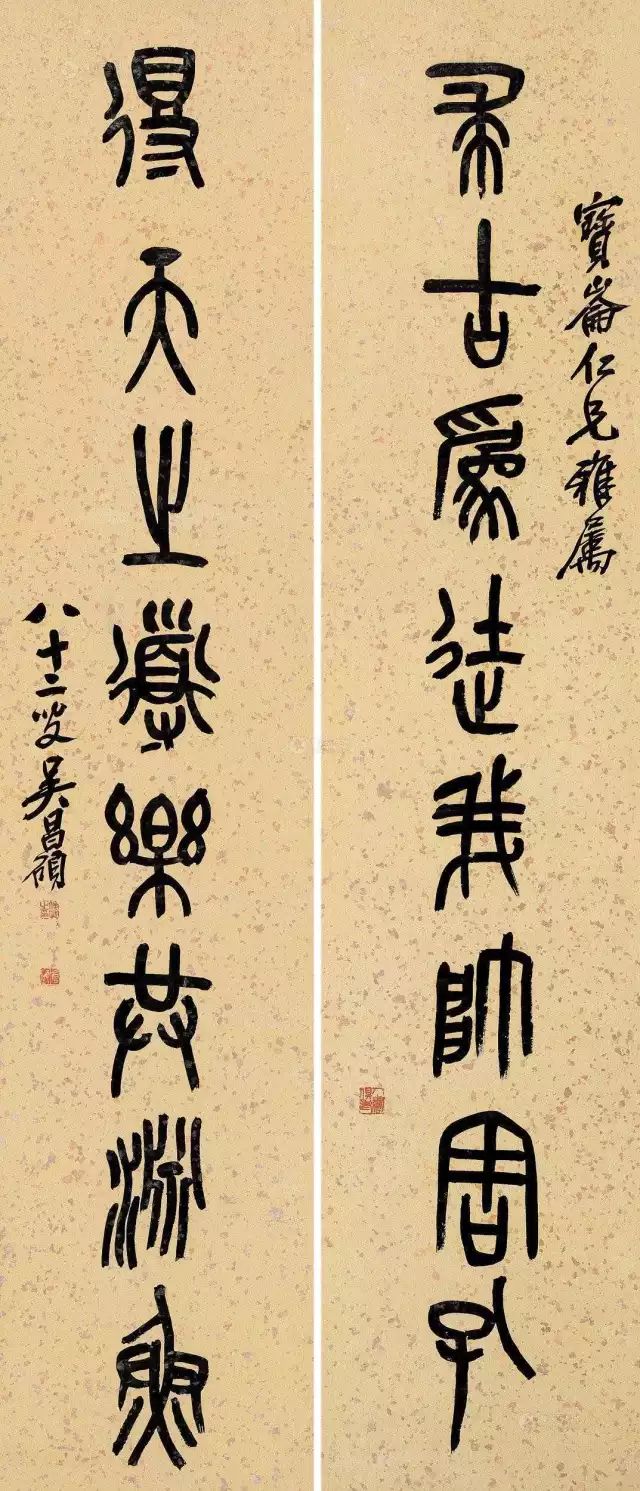 寶崙仁兄雅屬
求古為徒我帥周孔
得天之道樂共淵魚
八十二叟吳昌碩